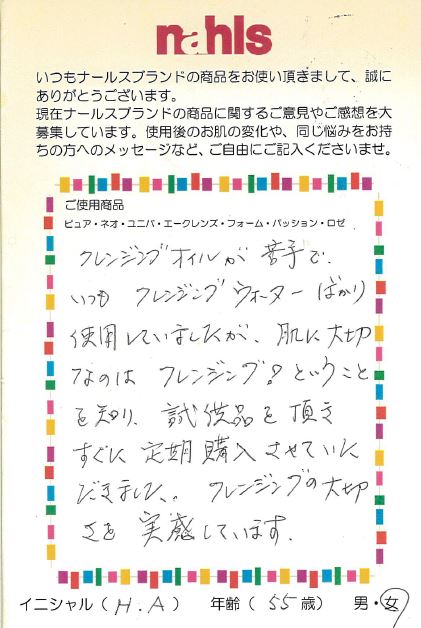 nahls
いつもナールスブランドの商品をお使い頂きまして、誠に
ありがとうございます。
現在ナールスブランドの商品に関するご意見やご感想を大
募集しています。使用後のお肌の変化や、同じ悩みをお持
ちの方へのメッセージなど、ご自由にご記入くださいませ。
ご使用商品
ピュア・ネオ・ユニバ・エークレンズ・フォーム・パッション・ロゼ
クレンジングオイルが苦手で、
いつも クレンジングウォーターばかり
使用していましたが、肌に大切
なのは クレンジング?ということ
を知り、試供品を頂き
すぐに定期購入させていた
だきました。クレンジングの大切
さを 実感しています。
イニシャル(H.A) 年齢(55歳) 男・女